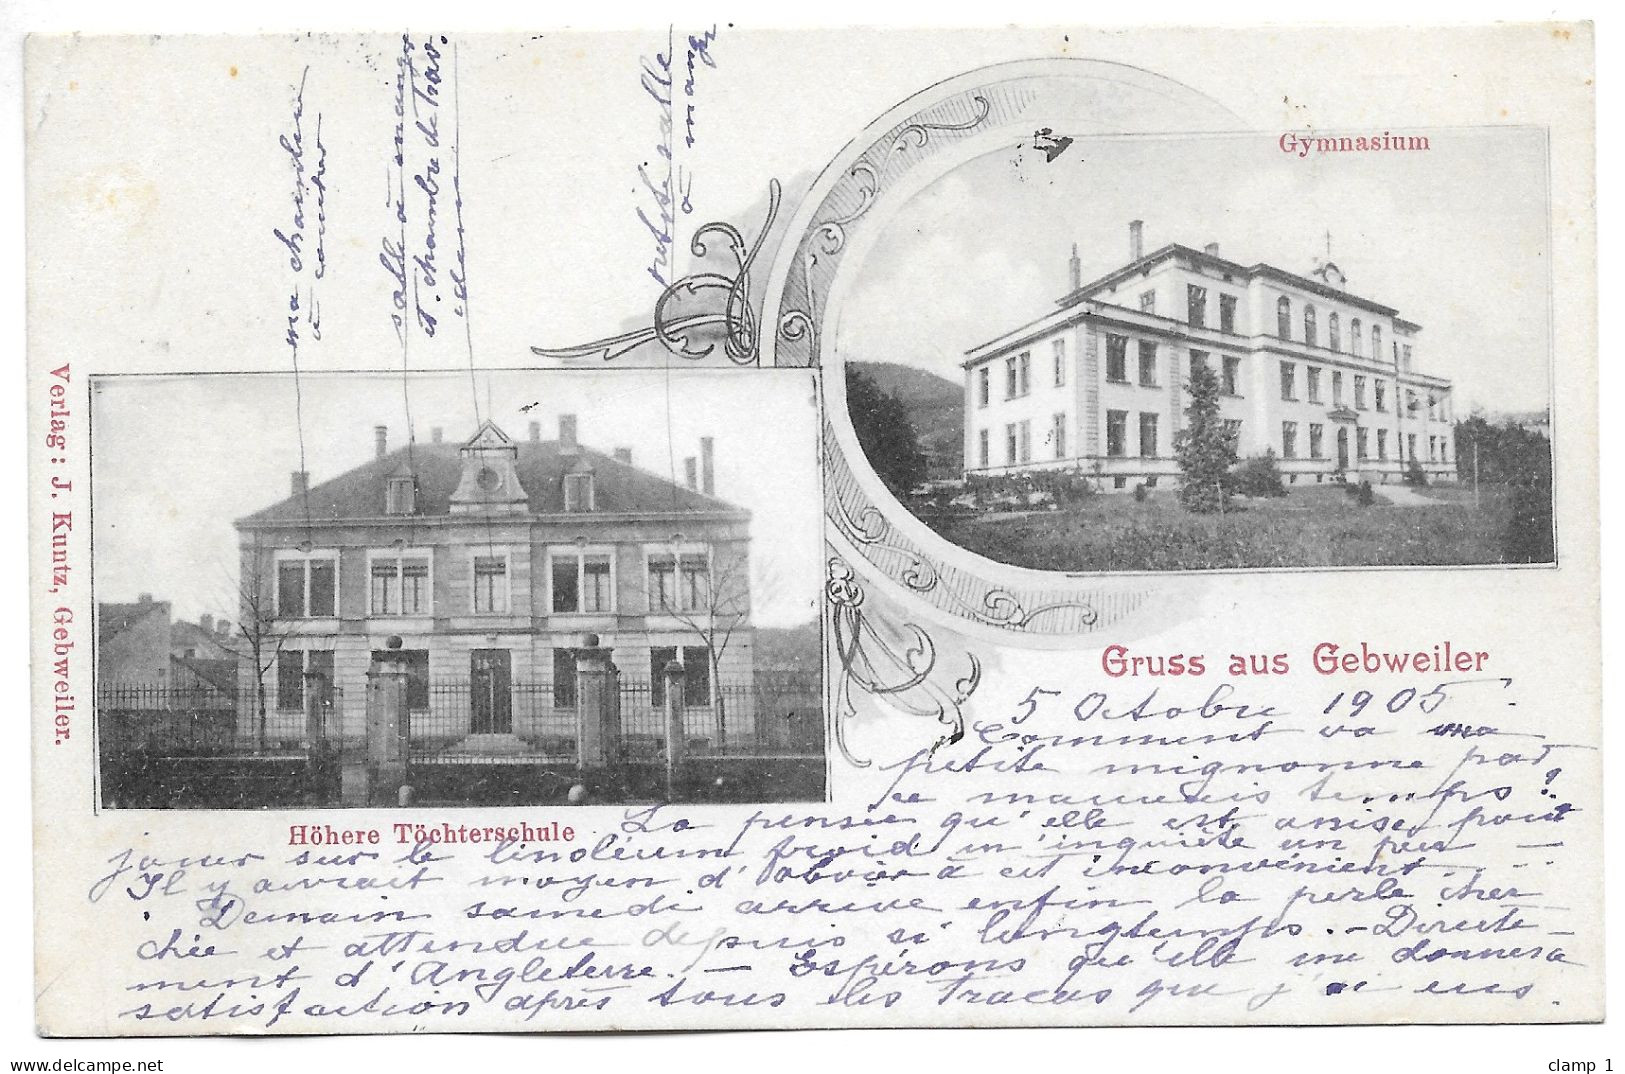 ma chambre
à coucher
salle à manger
et chambre de Trav.
idem
petite salle
à mang.
Gymnasium
Verlag: J. Kuntz, Gebweiler.
Höhere Töchterschule
Gruss aus Gebweiler
5 Octobre 1905.
Comment va ma
petite mignonne par
ce mauvais temps?
La pensée qu'elle est assise pour
jouer sur le linoléum froid m'inquiète un peu —
Il y aurait moyen d'obvier à cet inconvénient...
Demain samedi arrive enfin la perle cher-
chée et attendue depuis si longtemps. - Directe-
ment d'Angleterre. - Espérons qu'elle me donnera
satisfaction après tous les tracas que j'ai eus.
delcampe.net
clamp 1